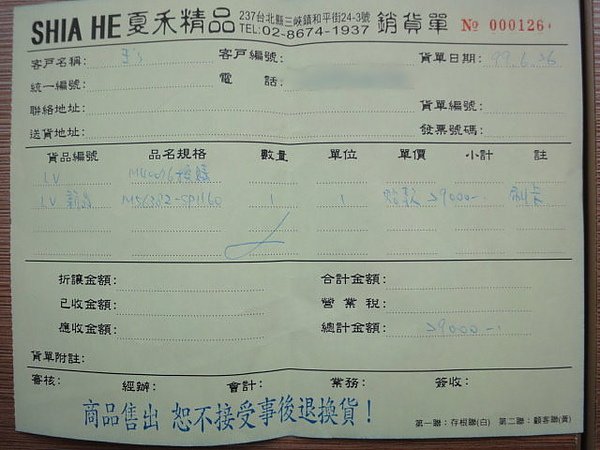 SHIA HE 夏禾精品 237台北縣三峽鎮和平街24-3號 TEL:02-8674-1937 銷貨單 № 000126
客戶名稱: 客戶編號: 貨單日期: 99.6.26
統一編號: 電話:
聯絡地址: 貨單編號:
送貨地址: 發票號碼:
貨品編號 品名規格 數量 單位 單價 小計 註
LV
LV 1 1 29000-
折讓金額: 合計金額:
已收金額: 營業稅:
應收金額: 總計金額: 29000-
貨單附註:
審核: 經辦: 會計: 業務: 簽收:
商品售出 恕不接受事後退換貨!
第一聯:存根聯(白) 第二聯:顧客聯(黃)